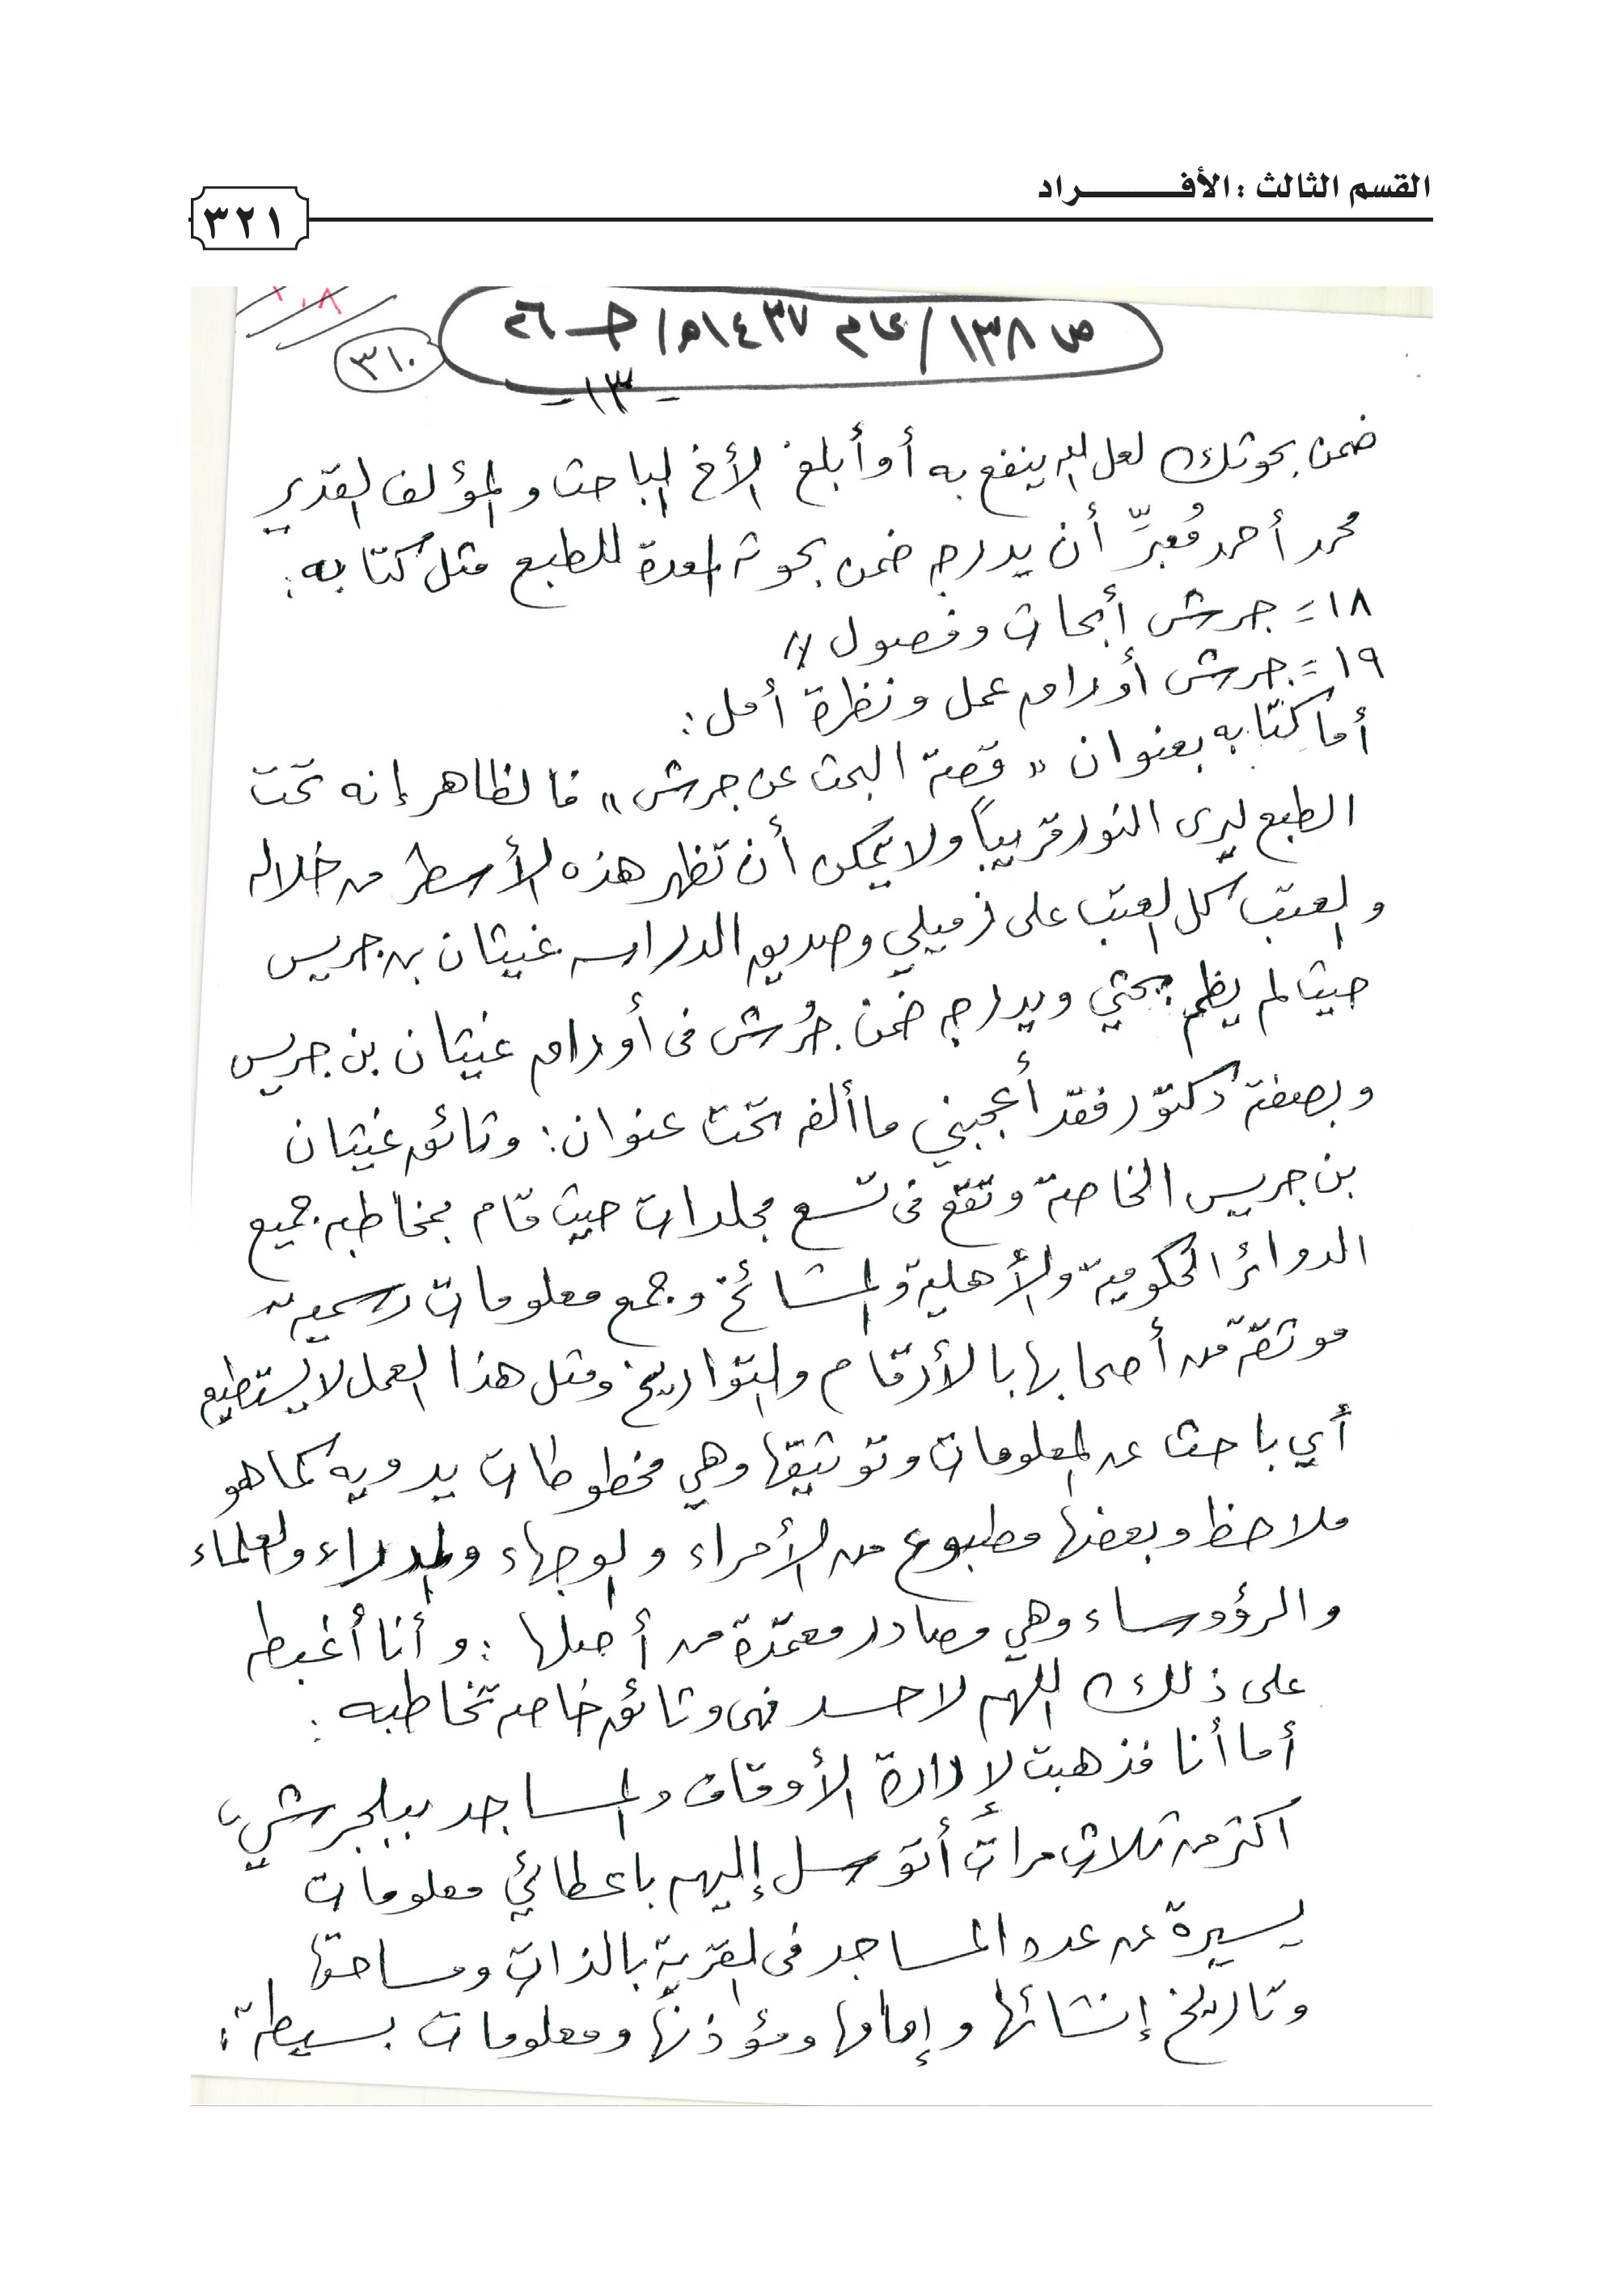 القسم الثالث : الأفـــــــراد
٣٢١
ص ١٣٨ / عام ١٤٣٧هـ / جـ ٢٦
٣١٠
١٠٨
-١٣-
ضمن بحوثك لعل الله ينفع به أو أبلغ الأخ الباحث والمؤلف القدير
محمد أحمد مُعبِّر أن يدرجه ضمن بحوثه المعدة للطبع مثل كتابه:
١٨ = جرش أبحاث وفصول //
١٩ = جرش أوراق عمل ونظرة أمل :
أما كتابه بعنوان « قصة البحث عن جرش » فالظاهر إنه تحت
الطبع ليرى النور قريباً ولا يمكن أن تظهر هذه الأسطر من خلاله
والعتب كل العتب على زميلي وصديق الدراسه غيثان بن جريس
حيث لم يظم بحثي ويدرجه ضمن جُرش في أوراق غيثان بن جريس
وبصفته دكتور فقد أعجبني ما ألفه تحت عنوان : وثائق غيثان
بن جريس الخاصة وتقع في تسع مجلدات حيث قام بمخاطبه جميع
الدوائر الحكومية والأهلية والمشائخ وجمع معلومات رسمية
موثقة من أصحابها بالأرقام والتواريخ ومثل هذا العمل لا يستطيع
أي باحث عن المعلومات وتوثيقها وهي مخطوطات يدويه كما هو
ملاحظ وبعضها مطبوع من الأمراء والوجهاء والمدراء والعلماء
والرؤوساء وهي مصادر معتمدة من أصلها : وأنا أُغبطه
على ذلك اللهم لا حسد فهي وثائق خاصه تخاطبه :
أما أنا فذهبت لإدارة الأوقاف والمساجد ببلجرشي
اكثر من ثلاث مرات أتوسل إليهم باعطائي معلومات
يسيرة عن عدد المساجد في القرية بالذات ومساحتها
وتاريخ إنشائها وإمامها ومؤذنها ومعلومات بسيطة :